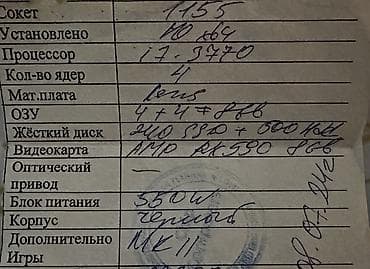 Сокет 1155
Установлено 10 x64
Процессор i7-3770
Кол-во ядер 4
Мат.плата
ОЗУ 4+4=8GB
Жёсткий диск 240 SSD + 500 HDD
Видеокарта AMD RX590 8GB
Оптический привод —
Блок питания 550W
Корпус черный
Дополнительно MK11
Игры